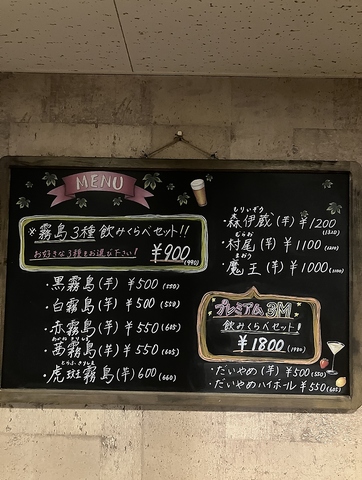 MENU
※霧島3種 飲みくらべセット!!
お好きな3種をお選び下さい! ¥900(990)
・黒霧島(芋) ¥500(550)
・白霧島(芋) ¥500(550)
・赤霧島(芋) ¥550(605)
あかねきりしま
・茜霧島(芋) ¥550(605)
とらふきりしま
・虎斑霧島(芋) 600(660)
もりいぞう
・森伊蔵(芋) ¥1200(1320)
むらお
・村尾(芋) ¥1100(1210)
まおう
・魔王(芋) ¥1000(1100)
プレミアム3M
飲みくらべセット!
¥1800(1980)
・だいやめ(芋) ¥500(550)
・だいやめハイボール ¥550(605)